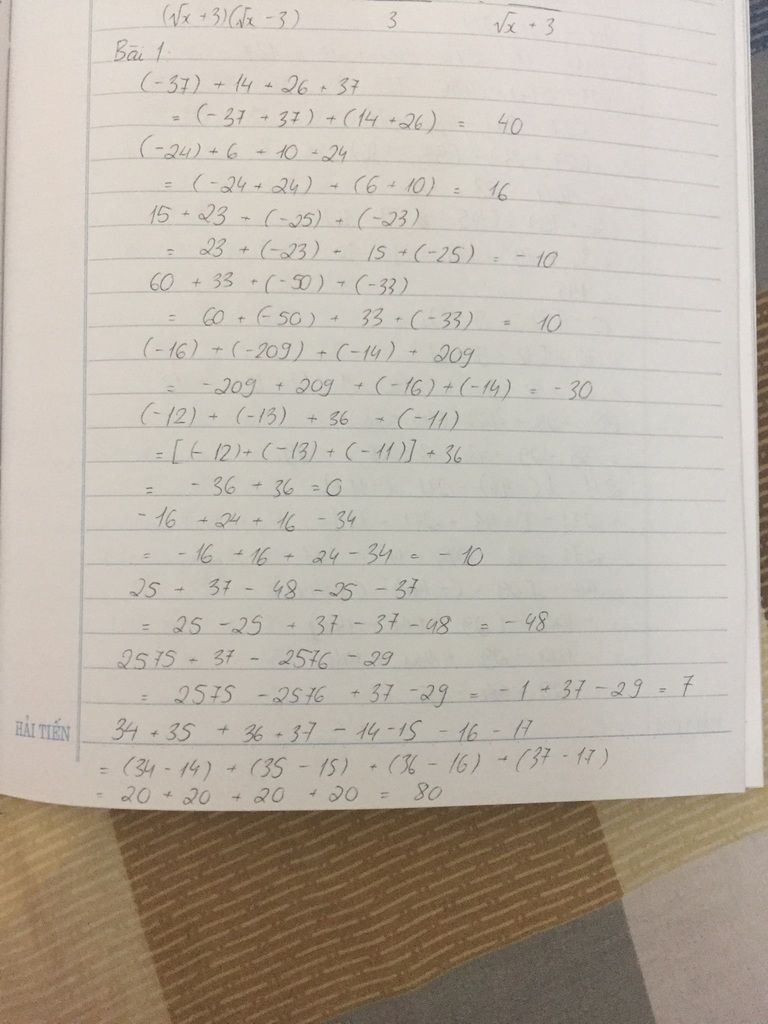 (√x + 3)(√x - 3) 3 √x + 3
Bài 1
(-37) + 14 + 26 + 37
= (-37 + 37) + (14 + 26) = 40
(-24) + 6 + 10 + 24
= (-24 + 24) + (6 + 10) = 16
15 + 23 + (-25) + (-23)
= 23 + (-23) + 15 + (-25) = -10
60 + 33 + (-50) + (-33)
= 60 + (-50) + 33 + (-33) = 10
(-16) + (-209) + (-14) + 209
= -209 + 209 + (-16) + (-14) = -30
(-12) + (-13) + 36 + (-11)
= [(-12) + (-13) + (-11)] + 36
= -36 + 36 = 0
-16 + 24 + 16 - 34
= -16 + 16 + 24 - 34 = -10
25 + 37 - 48 - 25 - 37
= 25 - 25 + 37 - 37 - 48 = -48
2575 + 37 - 2576 - 29
= 2575 - 2576 + 37 - 29 = -1 + 37 - 29 = 7
34 + 35 + 36 + 37 - 14 - 15 - 16 - 17
HẢI TIẾN
= (34 - 14) + (35 - 15) + (36 - 16) + (37 - 17)
= 20 + 20 + 20 + 20 = 80